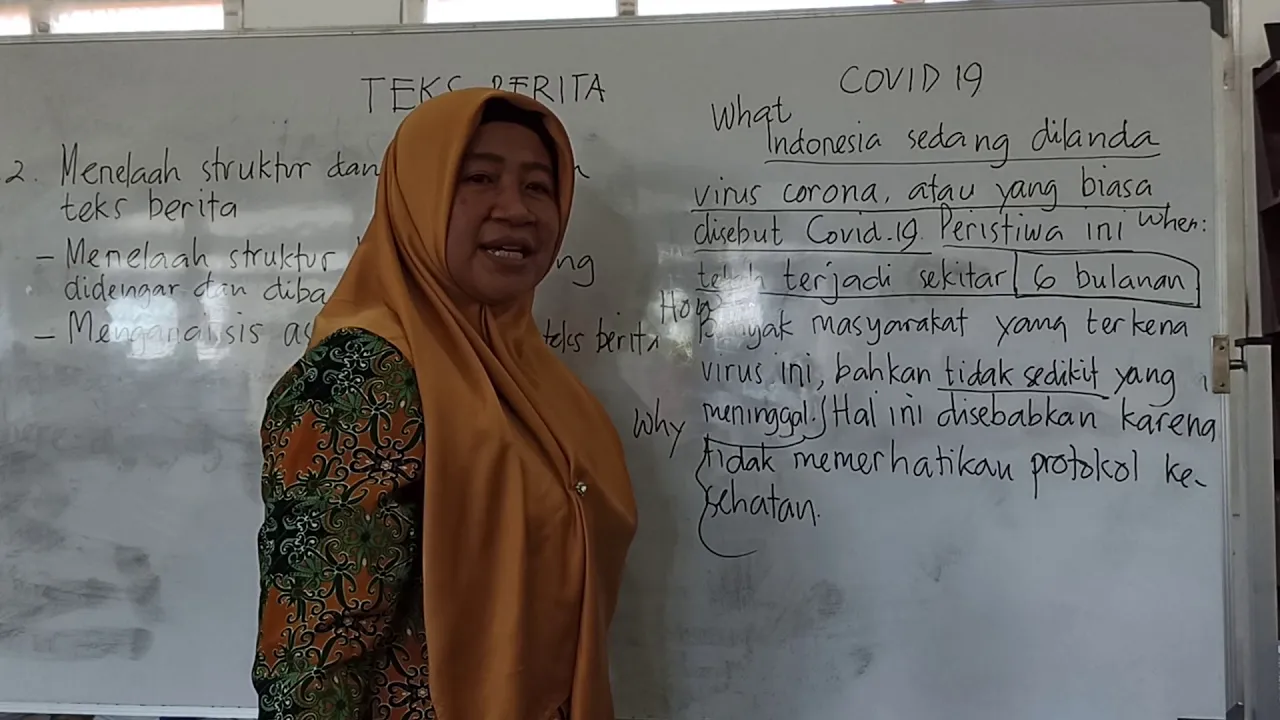 TEKS BERITA
2. Menelaah struktur dan
teks berita
- Menelaah struktur
didengar dan diba
- Menganalisis as teks berita
COVID 19
What
Indonesia sedang dilanda
virus corona, atau yang biasa
disebut Covid.19 Peristiwa ini When:
telah terjadi sekitar 6 bulanan
How
Banyak masyarakat yang terkena
virus ini, bahkan tidak sedikit yang
Why meninggal. Hal ini disebabkan karena
tidak memerhatikan protokol ke-
sehatan.